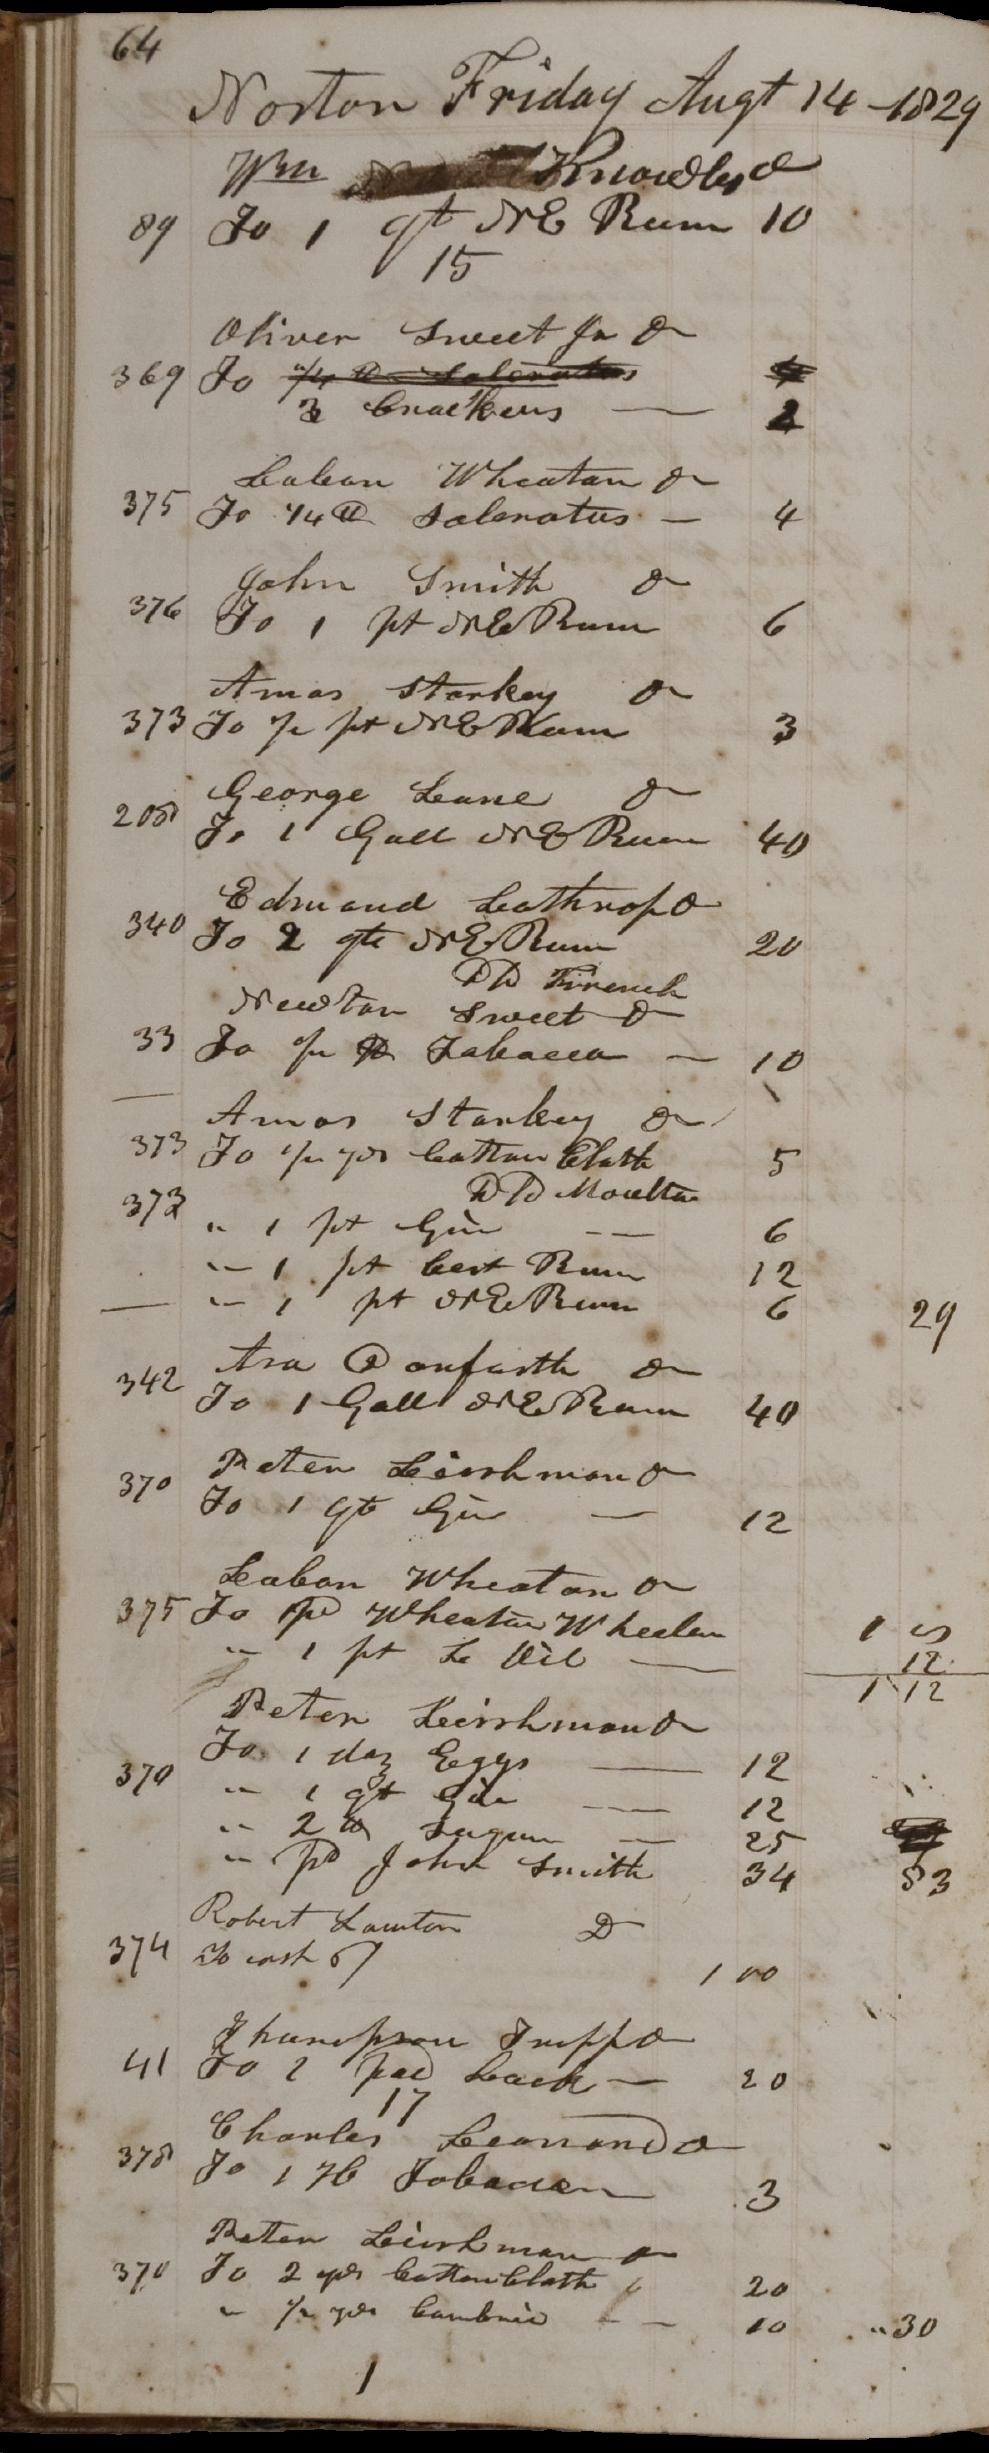 64
Norton Friday Augt 14 - 1829
Wm Knowles Dr
89 To 1 qt NE Rum 10
15
Oliver Sweet Jr Dr
369 To 1/4 lb Saleratus 4
3 Crackers — 2
Laban Wheaton Dr
375 To 1/4 lb Saleratus — 4
John Smith Dr
376 To 1 pt NE Rum 6
Amos Starkey Dr
373 To 1/2 pt NE Rum 3
George Lane Dr
208 To 1 Gall NE Rum 40
Edmand Lathrop Dr
340 To 2 qts NE Rum 20
DD French
Newton Sweet Dr
33 To 1/2 lb Tobacco — 10
Amos Starkey Dr
373 To 1/2 yds Cotton Cloth 5
DD Moulton
373 " 1 pt Gin — 6
" 1 pt Cert Rum 12
" 1 pt NE Rum 6 29
Asa Danforth Dr
342 To 1 Gall NE Rum 40
Peter Leishman Dr
370 To 1 qt Gin — 12
Laban Wheaton Dr
375 To pd Wheaton Wheeler 1 00
" 1 pt L Oil — 12
1 12
Peter Leishman Dr
To 1 doz Eggs — 12
370 " 1 qt Gin — 12
" 2 lb Sugar — 25
" pd John Smith 34 83
Robert Lawton D
374 To cash 6/ 1 00
Thompson Tripp Dr
41 To 2 Lead — 20
17
Charles Leonard Dr
378 To 1 Tobacco 3
Peter Leishman Dr
370 To 2 yds Cotton Cloth 20
" 1/2 yds Cambric — 10 " 30
1